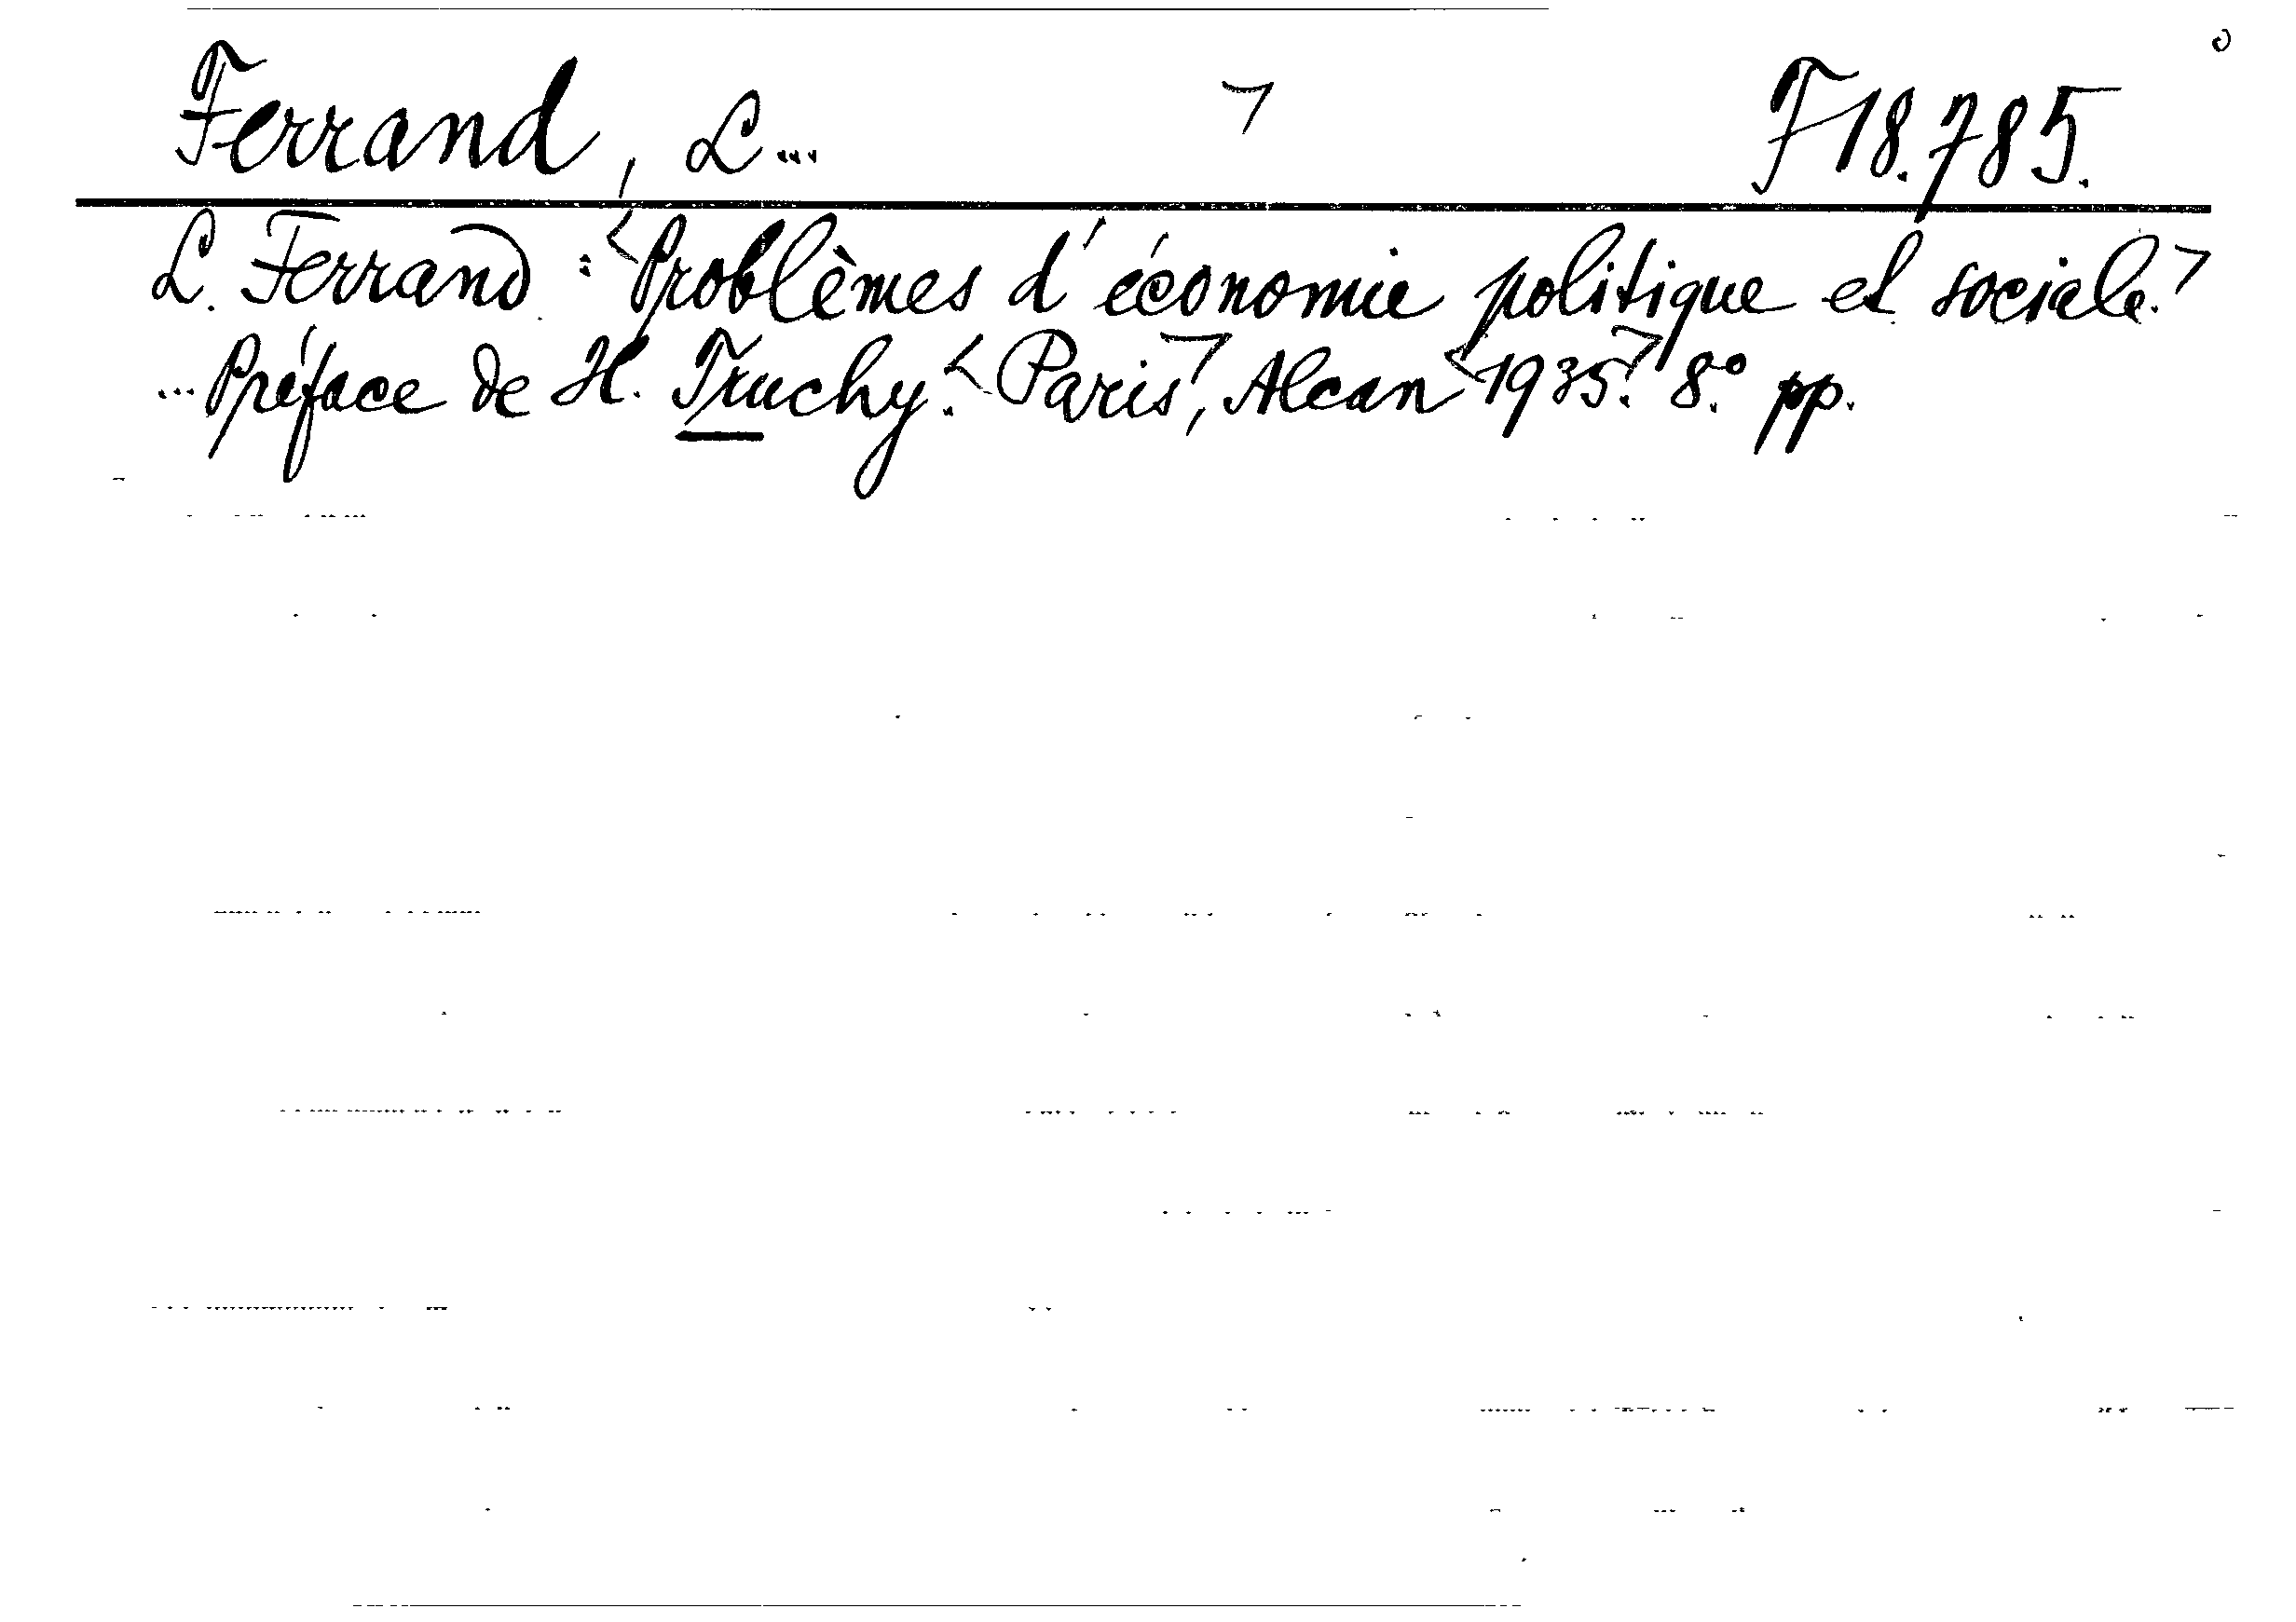 Ferrand, L... F 18.785.
L. Ferrand: Problèmes d'économie politique et sociale.
... Préface de H. Truchy. Paris, Alcan 1935. 8.° pp.